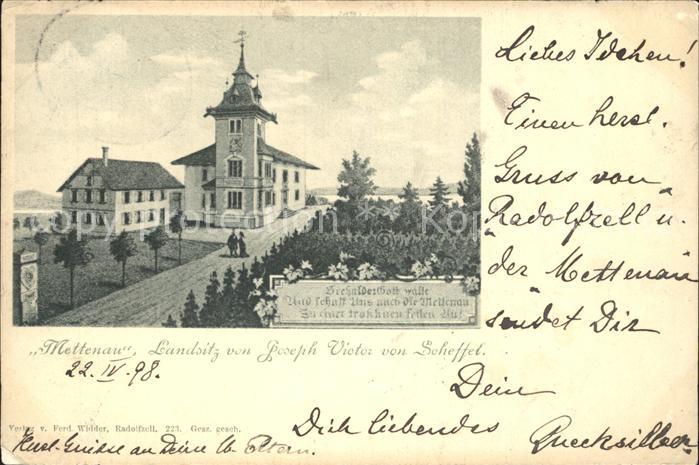 Liebes Idchen!
Einen herzl.
Gruss von
"Radolfzell u.
der Mettenau"
sendet Dir
Dein
Dich liebendes
Quecksilber
Seehalde: Gott walte
Und schaff Uns auch die Mettenau
Zu einer trokknen festen Au!
„Mettenau“, Landsitz von Joseph Victor von Scheffel.
22. IV. 98.
Verlag v. Ferd. Widder, Radolfzell. 223. Gesz. gesch.
Herzl. Grüsse an Deine lb. Eltern.